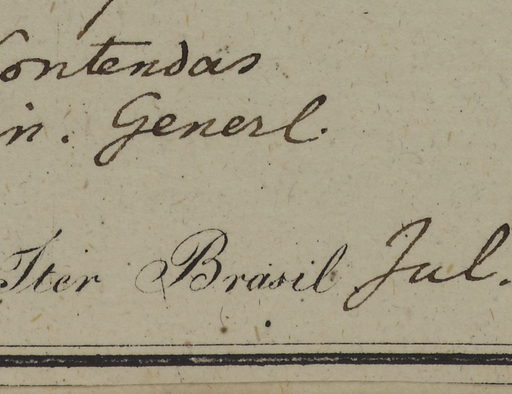 Contendas
in. Generl.
Iter Brasil Jul.